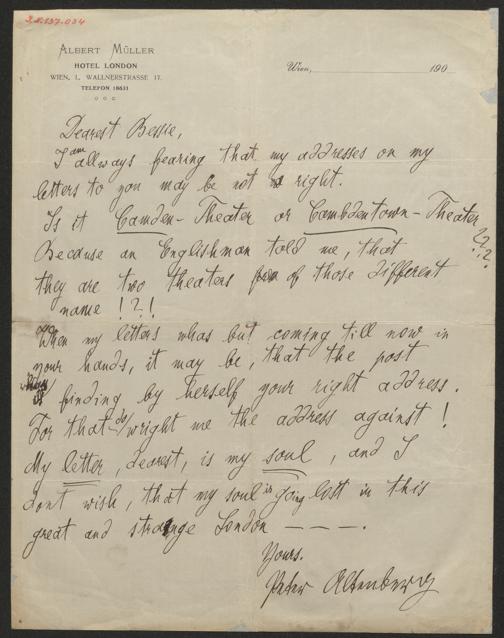 3.1.137.034
ALBERT MÜLLER
HOTEL LONDON
WIEN, I., WALLNERSTRASSE 17.
TELEFON 18631
Wien, 190
Dearest Bessie,
I am allways fearing that my addresses on my
letters to you may be not right.
Is it Camden-Theater or Cambdentown-Theater
???
Because an Englishman told me, that
they are two theaters of those different
name !?!
When my letters whas but coming till now in
your hands, it may be, that the post
is finding by herself your right address.
For that do wright me the address against!
My letter, dearest, is my soul, and I
dont wish, that my soul is going lost in this
great and strange London — — —.
Yours.
Peter Altenberg